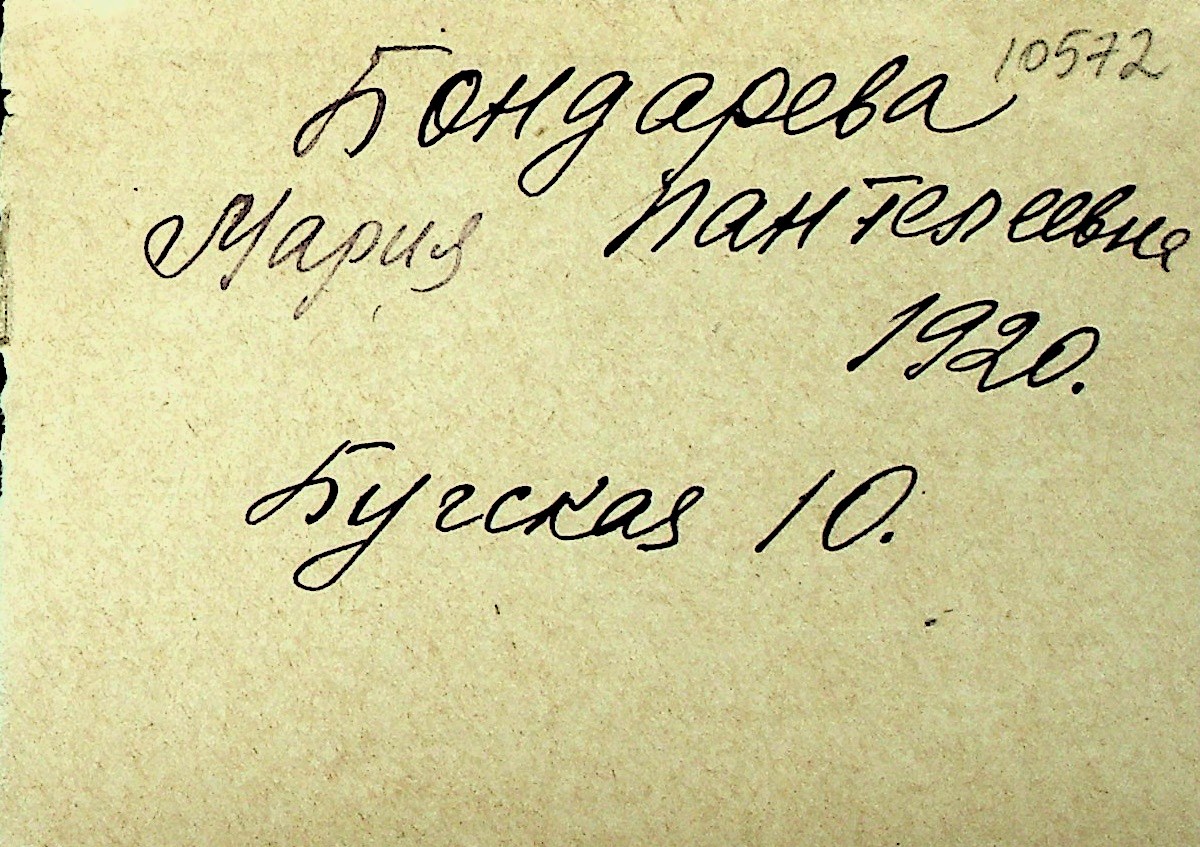 10572
Бондарева
Мария Пантелеевна
1920.
Бугская 10.